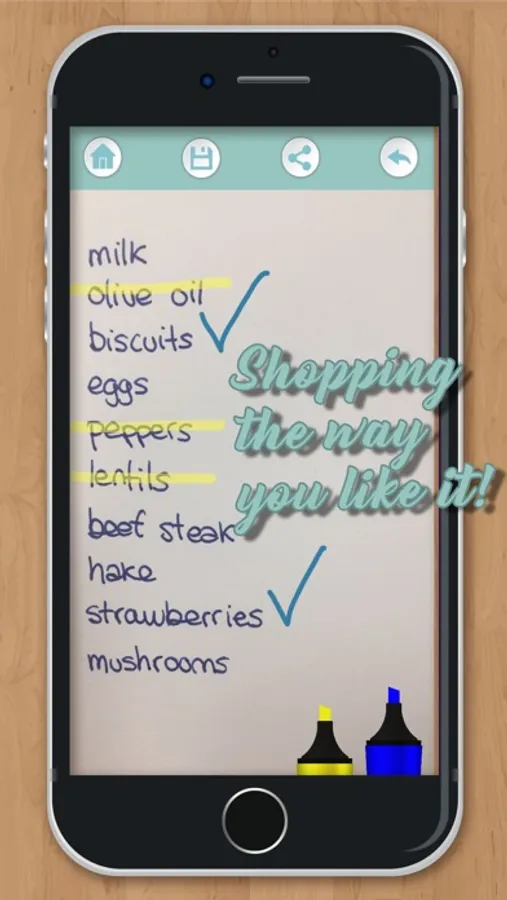 milk
olive oil
biscuits
eggs
peppers
lentils
beef steak
hake
strawberries
mushrooms
Shopping
the way
you like it!